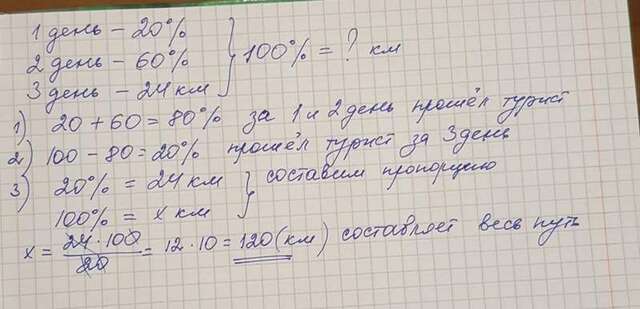 1 день – 20%
2 день – 60% } 100% = ? км
3 день – 24 км
1) 20 + 60 = 80% за 1 и 2 день прошёл турист
2) 100 – 80 = 20% прошёл турист за 3 день
3) 20% = 24 км } составим пропорцию
100% = x км
x = 24 · 100 / 20 = 12 · 10 = 120 (км) составляет весь путь